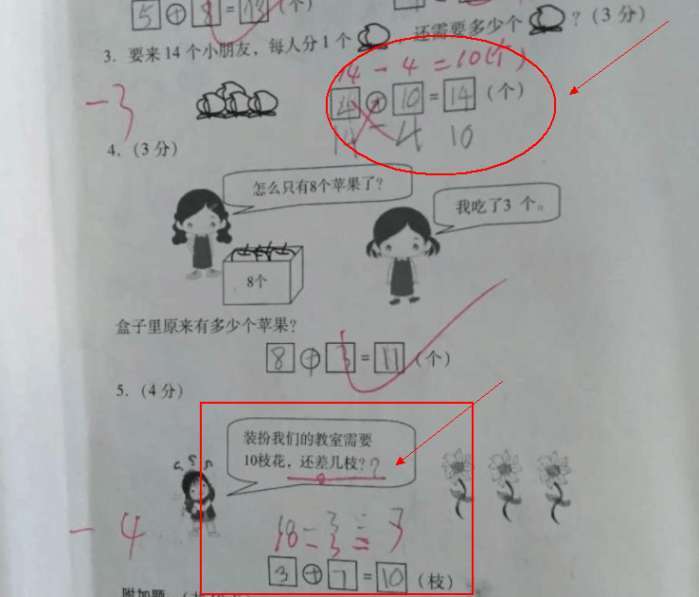 5 + 8 = 13 (个)
3. 要来 14 个小朋友，每人分 1 个 ，还需要多少个 ？(3 分)
14 - 4 = 10(个)
-3
4 + 10 = 14 (个)
14 - 4 10
4. (3 分)
怎么只有8个苹果了？
我吃了3 个。
8个
盒子里原来有多少个苹果？
8 + 3 = 11 (个)
5. (4 分)
装扮我们的教室需要
10枝花，还差几枝？
?
-4
3 + 7 = 10 (枝)
附加题